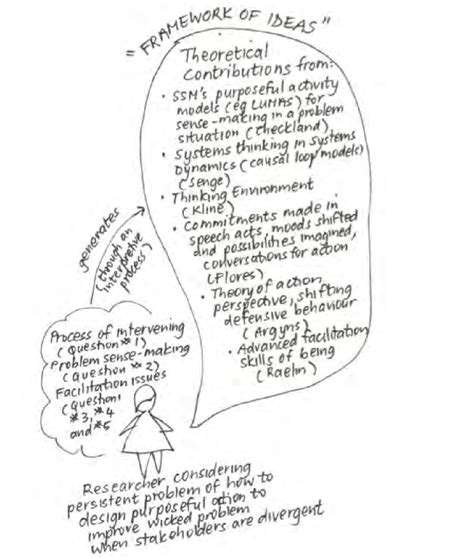 = "FRAMEWORK OF IDEAS"
Theoretical
Contributions from:
• SSM's purposeful activity
models (eg LUMAS) for
sense-making in a problem
situation (Checkland)
• Systems thinking in Systems
Dynamics (causal loop models)
(Senge)
• Thinking Environment
(Kline)
• Commitments made in
speech acts, moods shifted
and possibilities imagined,
conversations for action
(Flores)
• Theory of action
perspective, shifting
defensive behaviour
(Argyris)
• Advanced facilitation
skills of being
(Raelin)
generates
(through an
interpretive
process)
Process of Intervening
(Question #1)
Problem sense-making
(Question #2)
Facilitation issues
(Questions
#3, #4
and #5
Researcher considering
persistent problem of how to
design purposeful action to
improve wicked problem
when stakeholders are divergent